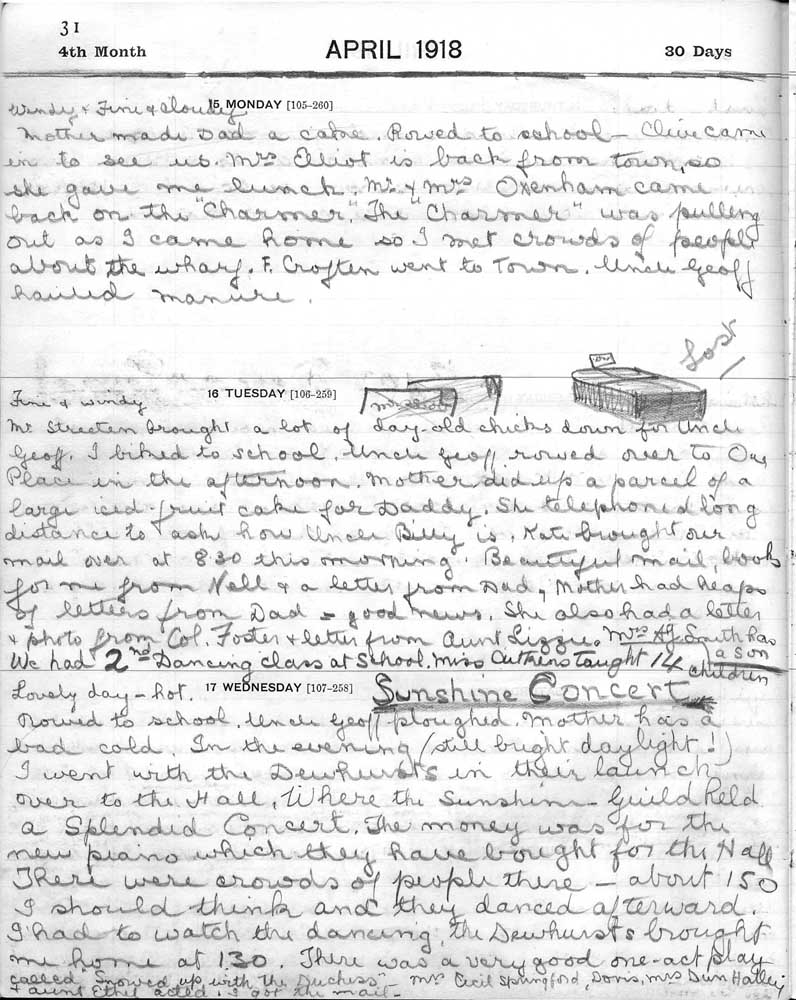 31
4th Month APRIL 1918 30 Days
Windy & Fine & Cloudy 15 MONDAY [105-260]
Mother made Dad a cake. Rowed to school – Clive came
in to see us. Mrs Elliot is back from town, so
she gave me lunch. Mr & Mrs Oxenham came
back on the "Charmer". The "Charmer" was pulling
out as I came home so I met crowds of people
about the wharf. F. Crofton went to Town. Uncle Geoff
hauled manure.
Lost
Fine & windy 16 TUESDAY [106-259]
Mr Streeten brought a lot of day-old chicks down for Uncle
Geoff. I biked to school. Uncle Geoff rowed over to Our
Place in the afternoon. Mother did up a parcel of a
large iced-fruit cake for Daddy. She telephoned long
distance to ask how Uncle Billy is. Kate brought our
mail over at 8 30 this morning. Beautiful mail, book
for me from Nell & a letter from Dad, Mother had heaps
of letters from Dad – good news. She also had a letter
& photo from Col. Foster & letter from Aunt Lizzie. Mrs AJ Smith has
a son
We had 2nd Dancing class at School. Miss taught 14 children
Lovely day – hot. 17 WEDNESDAY [107-258] Sunshine Concert
Rowed to school. Uncle Geoff ploughed. Mother has a
bad cold. In the evening (still bright daylight!)
I went with the Dewhursts in their launch
over to the Hall, Where the Sunshine Guild held
a Splendid Concert. The money was for the
new piano which they have bought for the Hall
There were crowds of people there – about 150
I should think and they danced afterward.
I had to watch the dancing, the Dewhursts brought
me home at 130. There was a very good one-act play
called "Snowed up with the Duchess" – Mrs Cecil Springford, Doris, Mrs Dun
& Aunt Ethel acted. I got the mail –